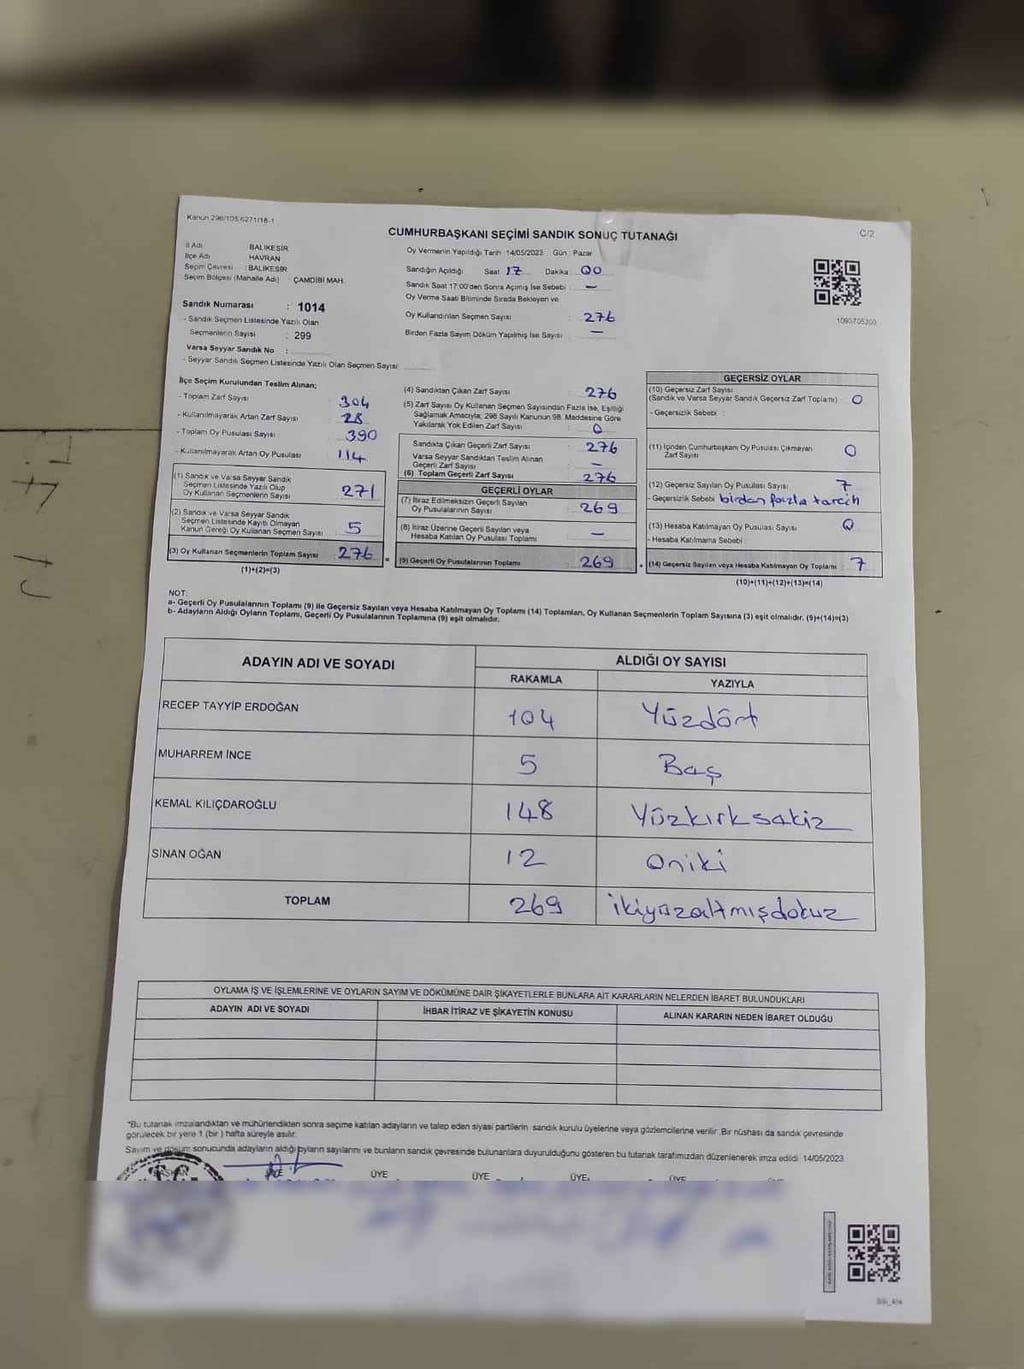 Kanun 298/105,6271/18-1
C/2
CUMHURBAŞKANI SEÇİMİ SANDIK SONUÇ TUTANAĞI
İl Adı : BALIKESİR
İlçe Adı : HAVRAN
Seçim Çevresi : BALIKESİR
Seçim Bölgesi (Mahalle Adı) : ÇAMDİBİ MAH.
Sandık Numarası : 1014
- Sandık Seçmen Listesinde Yazılı Olan
Seçmenlerin Sayısı : 299
Varsa Seyyar Sandık No :
- Seyyar Sandık Seçmen Listesinde Yazılı Olan Seçmen Sayısı:
Oy Vermenin Yapıldığı Tarih 14/05/2023 Gün : Pazar
Sandığın Açıldığı Saat 17 Dakika 00
Sandık Saat 17:00'den Sonra Açılmış İse Sebebi : —
Oy Verme Saati Bitiminde Sırada Bekleyen ve
Oy Kullandırılan Seçmen Sayısı : 276
Birden Fazla Sayım Döküm Yapılmış İse Sayısı : —
İlçe Seçim Kurulundan Teslim Alınan;
- Toplam Zarf Sayısı : 304
- Kullanılmayarak Artan Zarf Sayısı : 28
- Toplam Oy Pusulası Sayısı : 390
- Kullanılmayarak Artan Oy Pusulası : 114
(1) Sandık ve Varsa Seyyar Sandık
Seçmen Listesinde Yazılı Olup
Oy Kullanan Seçmenlerin Sayısı : 271
(2) Sandık ve Varsa Seyyar Sandık
Seçmen Listesinde Kayıtlı Olmayan
Kanun Gereği Oy Kullanan Seçmen Sayısı : 5
(3) Oy Kullanan Seçmenlerin Toplam Sayısı : 276
(1)+(2)=(3)
(4) Sandıktan Çıkan Zarf Sayısı : 276
(5) Zarf Sayısı Oy Kullanan Seçmen Sayısından Fazla İse, Eşitliği
Sağlamak Amacıyla; 298 Sayılı Kanunun 98. Maddesine Göre
Yakılarak Yok Edilen Zarf Sayısı : 0
Sandıkta Çıkan Geçerli Zarf Sayısı : 276
Varsa Seyyar Sandıktan Teslim Alınan
Geçerli Zarf Sayısı : —
(6) Toplam Geçerli Zarf Sayısı : 276
GEÇERLİ OYLAR
(7) İtiraz Edilmeksizin Geçerli Sayılan
Oy Pusulalarının Sayısı : 269
(8) İtiraz Üzerine Geçerli Sayılan veya
Hesaba Katılan Oy Pusulası Toplamı : —
(9) Geçerli Oy Pusulalarının Toplamı : 269
GEÇERSİZ OYLAR
(10) Geçersiz Zarf Sayısı
(Sandık ve Varsa Seyyar Sandık Geçersiz Zarf Toplamı) : 0
- Geçersizlik Sebebi :
(11) İçinden Cumhurbaşkanı Oy Pusulası Çıkmayan
Zarf Sayısı : 0
(12) Geçersiz Sayılan Oy Pusulası Sayısı : 7
- Geçersizlik Sebebi : birden fazla tercih
(13) Hesaba Katılmayan Oy Pusulası Sayısı : 0
- Hesaba Katılmama Sebebi
(14) Geçersiz Sayılan veya Hesaba Katılmayan Oy Toplamı : 7
(10)+(11)+(12)+(13)=(14)
NOT:
a- Geçerli Oy Pusulalarının Toplamı (9) ile Geçersiz Sayılan veya Hesaba Katılmayan Oy Toplamı (14) Toplamları, Oy Kullanan Seçmenlerin Toplam Sayısına (3) eşit olmalıdır. (9)+(14)=(3)
b- Adayların Aldığı Oyların Toplamı, Geçerli Oy Pusulalarının Toplamına (9) eşit olmalıdır.
ADAYIN ADI VE SOYADI ALDIĞI OY SAYISI
RAKAMLA YAZIYLA
RECEP TAYYİP ERDOĞAN 104 Yüzdört
MUHARREM İNCE 5 Beş
KEMAL KILIÇDAROĞLU 148 Yüzkırksekiz
SİNAN OĞAN 12 Oniki
TOPLAM 269 ikiyüzaltmışdokuz
OYLAMA İŞ VE İŞLEMLERİNE VE OYLARIN SAYIM VE DÖKÜMÜNE DAİR ŞİKAYETLERLE BUNLARA AİT KARARLARIN NELERDEN İBARET BULUNDUKLARI
ADAYIN ADI VE SOYADI İHBAR İTİRAZ VE ŞİKAYETİN KONUSU ALINAN KARARIN NEDEN İBARET OLDUĞU
*Bu tutanak imzalandıktan ve mühürlendikten sonra seçime katılan adayların ve talep eden siyasi partilerin sandık kurulu üyelerine veya gözlemcilerine verilir. Bir nüshası da sandık çevresinde
görülecek bir yere 1 (bir) hafta süreyle asılır.
Sayım ve döküm sonucunda adayların aldığı oyların sayılarını ve bunların sandık çevresinde bulunanlara duyurulduğunu gösteren bu tutanak tarafımızdan düzenlenerek imza edildi. 14/05/2023
T.C.
BAŞKAN ÜYE ÜYE ÜYE ÜYE